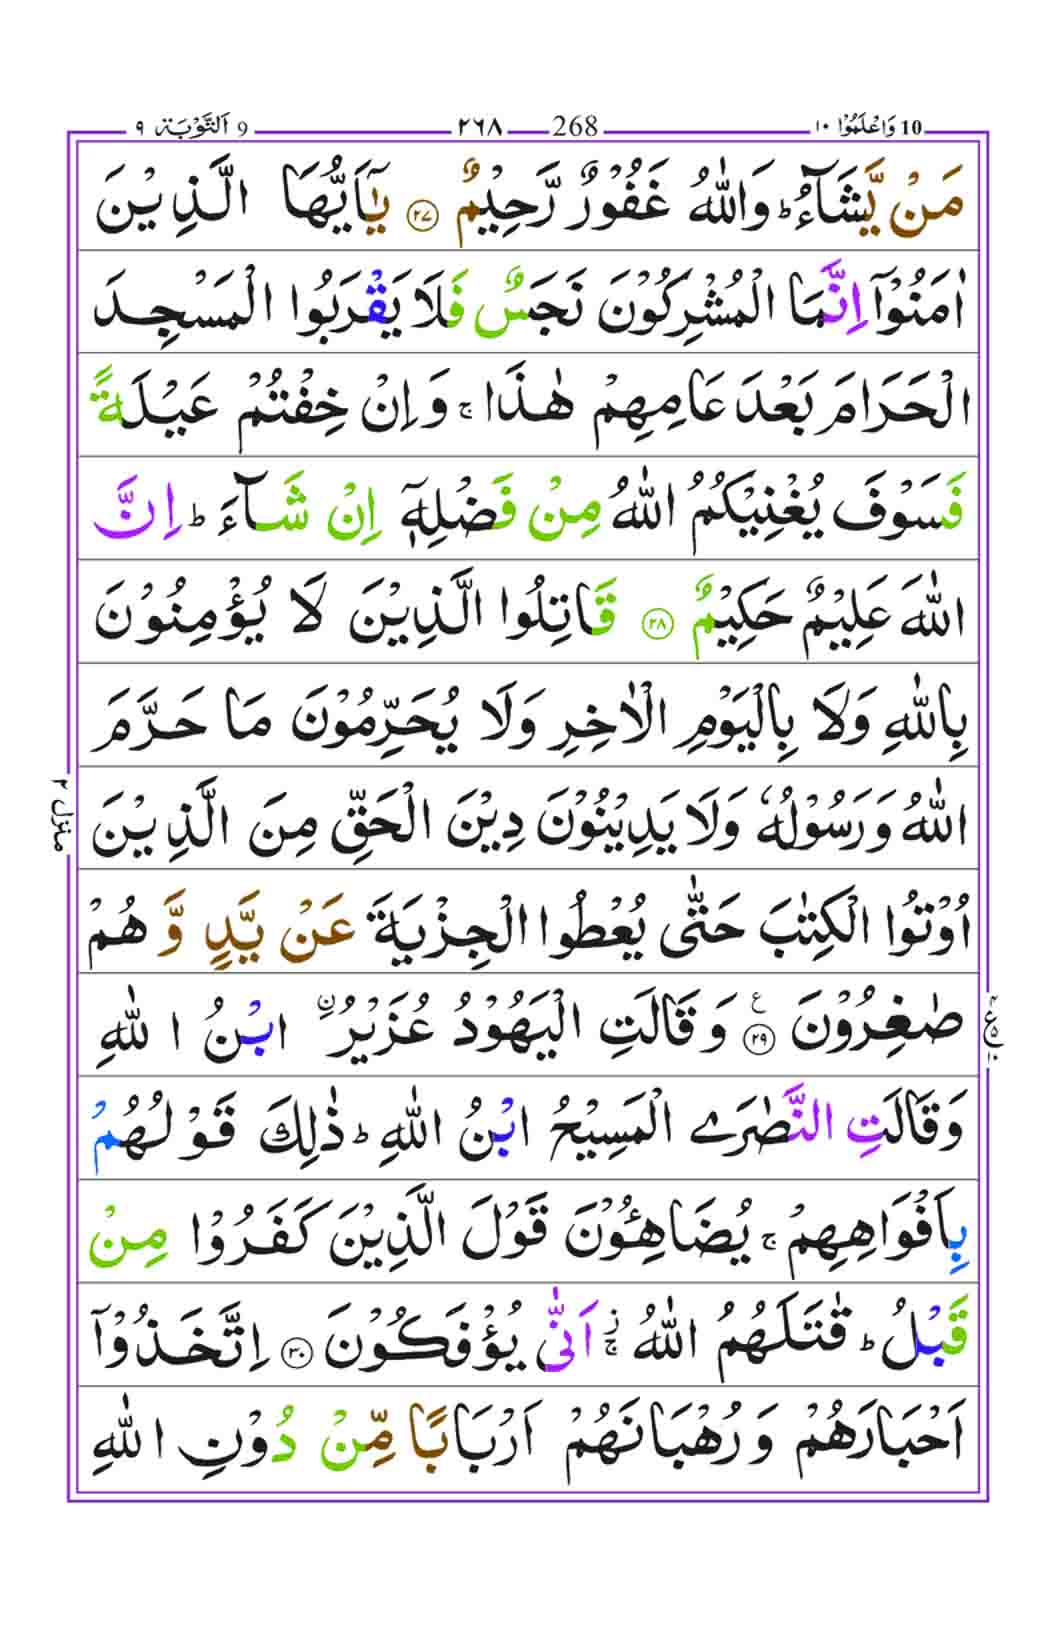 10 وَاعْلَمُوْۤا ١٠ 268 ٢٦٨ 9 اَلتَّوْبَة ٩
مَنْ يَّشَآءُ ؕ وَاللّٰهُ غَفُوْرٌ رَّحِيْمٌ ۝٢٧ يٰۤاَيُّهَا الَّذِيْنَ
اٰمَنُوْۤا اِنَّمَا الْمُشْرِكُوْنَ نَجَسٌ فَلَا يَقْرَبُوا الْمَسْجِدَ
الْحَرَامَ بَعْدَ عَامِهِمْ هٰذَا ۚ وَاِنْ خِفْتُمْ عَيْلَةً
فَسَوْفَ يُغْنِيْكُمُ اللّٰهُ مِنْ فَضْلِهٖۤ اِنْ شَآءَ ؕ اِنَّ
اللّٰهَ عَلِيْمٌ حَكِيْمٌ ۝٢٨ قَاتِلُوا الَّذِيْنَ لَا يُؤْمِنُوْنَ
بِاللّٰهِ وَلَا بِالْيَوْمِ الْاٰخِرِ وَلَا يُحَرِّمُوْنَ مَا حَرَّمَ
اللّٰهُ وَرَسُوْلُهٗ وَلَا يَدِيْنُوْنَ دِيْنَ الْحَقِّ مِنَ الَّذِيْنَ
اُوْتُوا الْكِتٰبَ حَتّٰى يُعْطُوا الْجِزْيَةَ عَنْ يَّدٍ وَّ هُمْ
صٰغِرُوْنَ ۝٢٩ ع وَقَالَتِ الْيَهُوْدُ عُزَيْرُ ۨ ابْنُ اللّٰهِ
وَقَالَتِ النَّصٰرَى الْمَسِيْحُ ابْنُ اللّٰهِ ؕ ذٰلِكَ قَوْلُهُمْ
بِاَفْوَاهِهِمْ ۚ يُضَاهِـُٔوْنَ قَوْلَ الَّذِيْنَ كَفَرُوْا مِنْ
قَبْلُ ؕ قٰتَلَهُمُ اللّٰهُ ۚ اَنّٰى يُؤْفَكُوْنَ ۝٣٠ اِتَّخَذُوْۤا
اَحْبَارَهُمْ وَرُهْبَانَهُمْ اَرْبَابًا مِّنْ دُوْنِ اللّٰهِ
منزل ٢